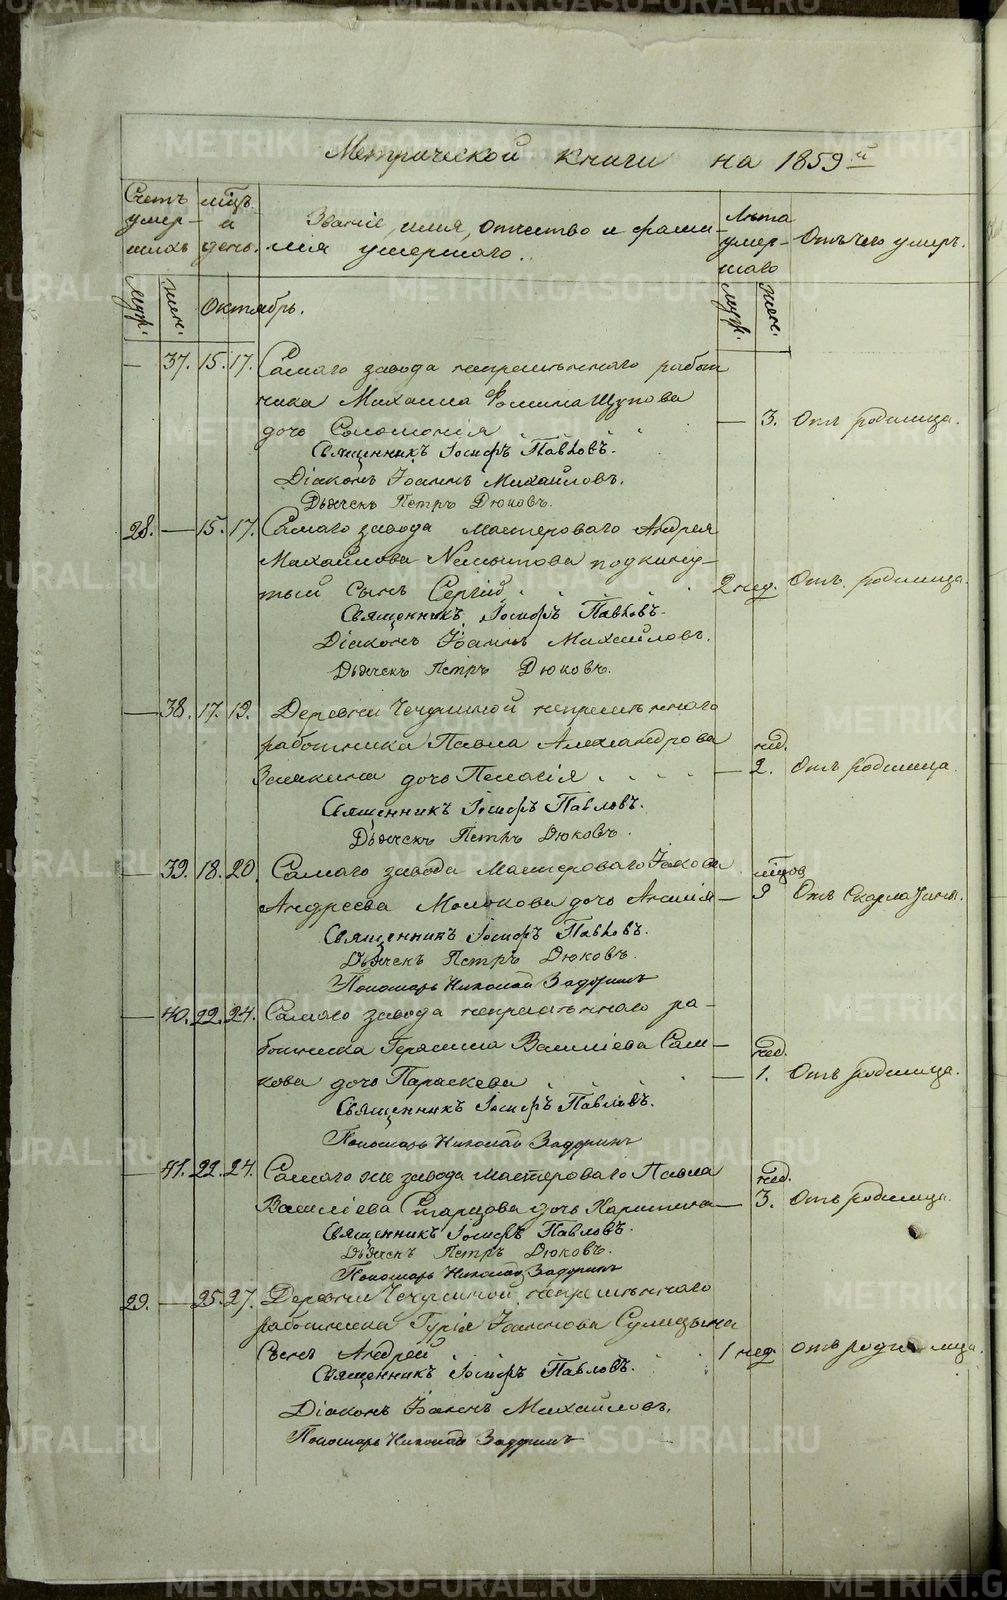 Метрической книги на 1859й
Счетъ умер-шихъ
мѣцъ и день.
Званіе, имя, отчество и фами-
лія умершаго.
Лѣта умер-шаго
Отъ чего умеръ.
муж. жен. Октябрь. муж. жен.
— 37. 15. 17. Самаго завода непремѣннаго работ
ника Михаила Фомина Щупова
дочь Соломонія — 3. Отъ родимца.
Священникъ Іосифъ Павловъ.
Діаконъ Іоаннъ Михайловъ.
Дьячекъ Петръ Дюковъ.
28. — 15. 17. Самаго завода мастероваго Андрея
Михайлова подкину-
тый сынъ Сергій 2 нед. Отъ родимца.
Священникъ Іосифъ Павловъ.
Діаконъ Іоаннъ Михайловъ.
Дьячекъ Петръ Дюковъ.
— 38. 17. 19. Деревни непремѣннаго
работника Павла Александрова
дочь Пелагія — нед. 2. Отъ родимца
Священникъ Іосифъ Павловъ.
Дьячекъ Петръ Дюковъ.
— 39. 18. 20. Самаго завода мастероваго Іакова
Андреева Молокова дочь Анисія — мѣцов 9 Отъ скарлатины.
Священникъ Іосифъ Павловъ.
Дьячекъ Петръ Дюковъ.
Пономарь Николай Задоринъ
— 40. 22. 24. Самаго завода непремѣннаго ра-
ботника Герасима Василіева Сал-
кова дочь Параскева — нед. 1. Отъ родимца.
Священникъ Іосифъ Павловъ.
Пономарь Николай Задоринъ
— 41. 22. 24. Самаго же завода мастероваго Павла
Василіева Старцова дочь Харитина — нед. 3. Отъ родимца.
Священникъ Іосифъ Павловъ.
Дьячекъ Петръ Дюковъ.
Пономарь Николай Задоринъ
29. — 25. 27. Деревни непремѣннаго
работника Гурія Іоаннова
сынъ Андрей 1 нед. отъ родимца.
Священникъ Іосифъ Павловъ.
Діаконъ Іоаннъ Михайловъ.
Пономарь Николай Задоринъ
METRIKI.GASO-URAL.RU